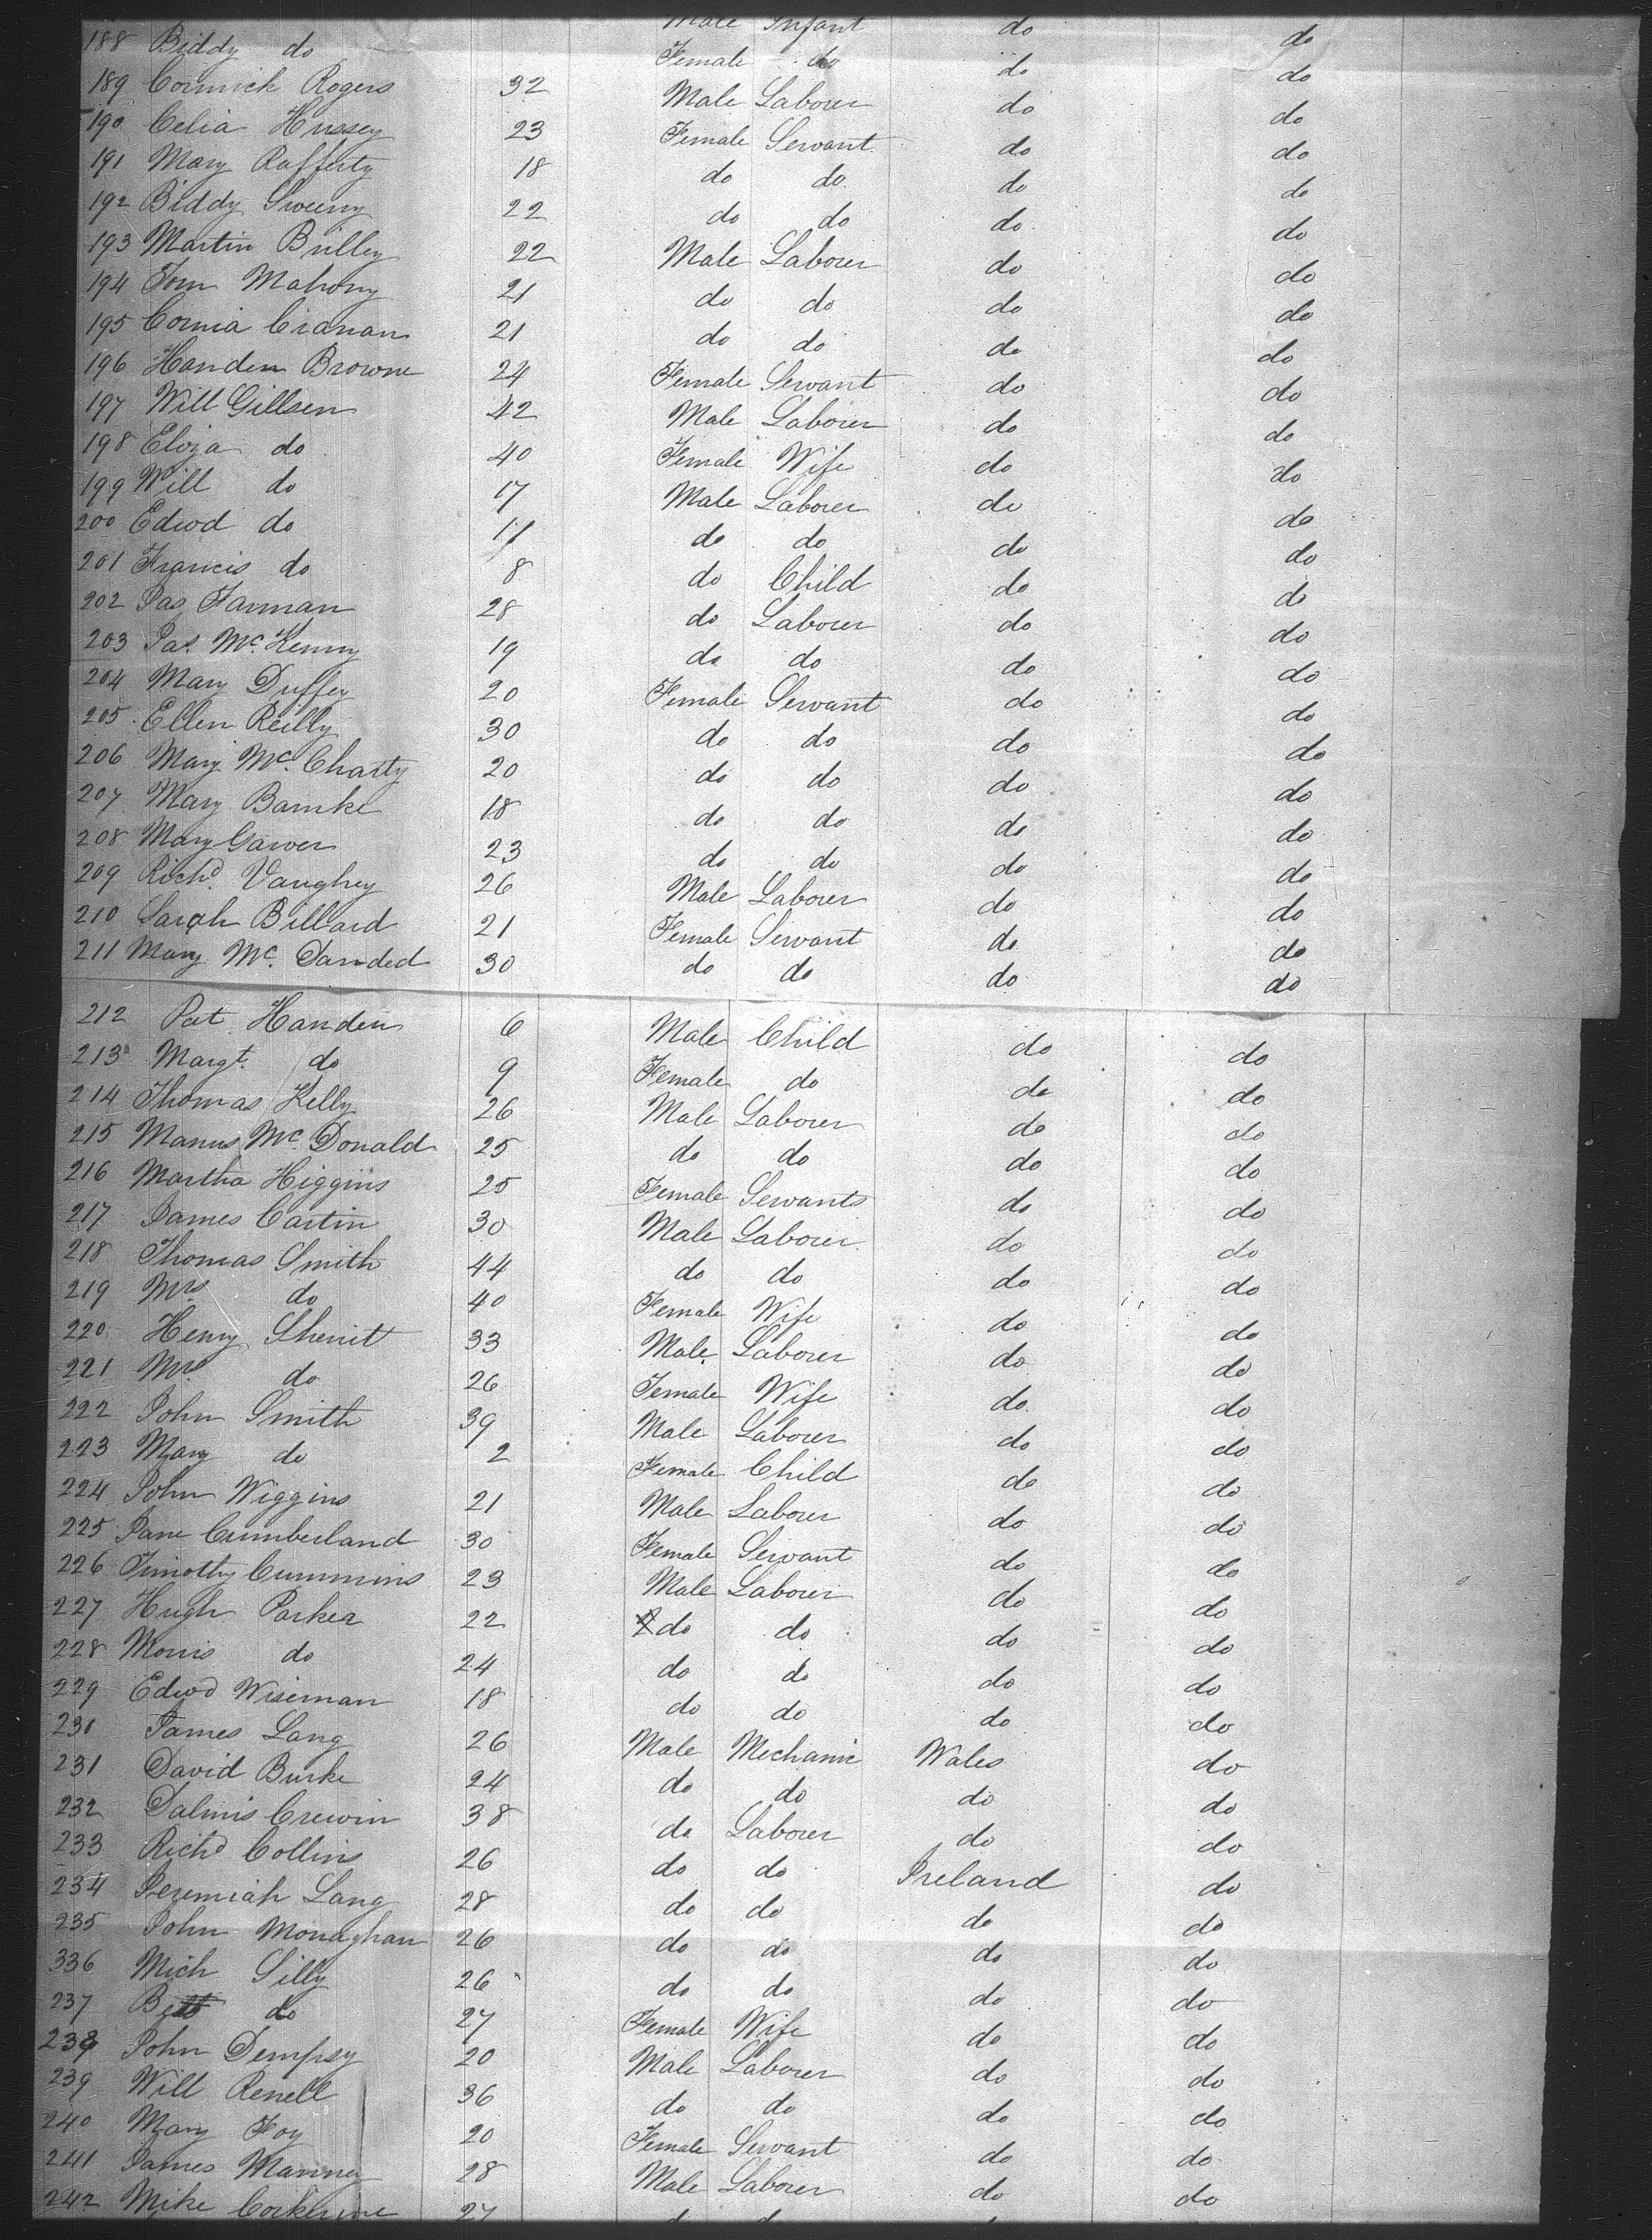 Male Infant do do
188 Biddy do Female do do do
189 Cormick Rogers 32 Male Laborer do do
190 Celia Hussey 23 Female Servant do do
191 Mary Rafferty 18 do do do do
192 Biddy Sweeny 22 do do do do
193 Martin Brilley 22 Male Laborer do do
194 Tom Mahony 21 do do do do
195 Cornia Cranan 21 do do do do
196 Handen Browne 24 Female Servant do do
197 Will Gillsen 42 Male Laborer do do
198 Eliza do 40 Female Wife do do
199 Will do 17 Male Laborer do do
200 Edwd do 11 do do do do
201 Francis do 8 do Child do do
202 Jas Farman 28 do Laborer do do
203 Jas. McKenny 19 do do do do
204 Mary Duffey 20 Female Servant do do
205 Ellen Reilly 30 do do do do
206 Mary Mc.Charty 20 do do do do
207 Mary Bamke 18 do do do do
208 Mary Gawer 23 do do do do
209 Richd. Vaughey 26 Male Laborer do do
210 Sarah Billard 21 Female Servant do do
211 Mary Mc. Danded 30 do do do do
212 Pat Handen 6 Male Child do do
213 Margt. do 9 Female do do do
214 Thomas Kelly 26 Male Laborer do do
215 Manus McDonald 25 do do do do
216 Martha Higgins 25 Female Servants do do
217 James Cartin 30 Male Laborer do do
218 Thomas Smith 44 do do do do
219 Mrs do 40 Female Wife do do
220 Henry Sherit 33 Male Laborer do do
221 Mrs do 26 Female Wife do do
222 John Smith 39 Male Laborer do do
223 Mary do 2 Female Child do do
224 John Wiggins 21 Male Laborer do do
225 Jane Cumberland 30 Female Servant do do
226 Timothy Cummins 23 Male Laborer do do
227 Hugh Parker 22 do do do do
228 Morris do 24 do do do do
229 Edwd Wiseman 18 do do do do
230 James Lang 26 Male Mechanic Wales do
231 David Burke 24 do do do do
232 Dalmis Crewin 38 do Laborer do do
233 Richd Collins 26 do do Ireland do
234 Jeremiah Lang 28 do do do do
235 John Monaghan 26 do do do do
336 Mich Silly 26 do do do do
237 Bett do 27 Female Wife do do
238 John Dempsy 20 Male Laborer do do
239 Will Renell 36 do do do do
240 Mary Foy 20 Female Servant do do
241 James Manney 28 Male Laborer do do
242 Mike 27